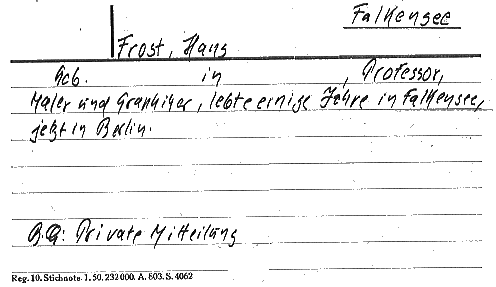 Falkensee
Frost, Hans
Geb. in , Professor,
Maler und Graphiker, lebte einige Jahre in Falkensee,
jetzt in Berlin.
B.G: Private Mitteilung
Reg. 10. Stichnote. 1. 50. 232000. A. 603. S. 4062